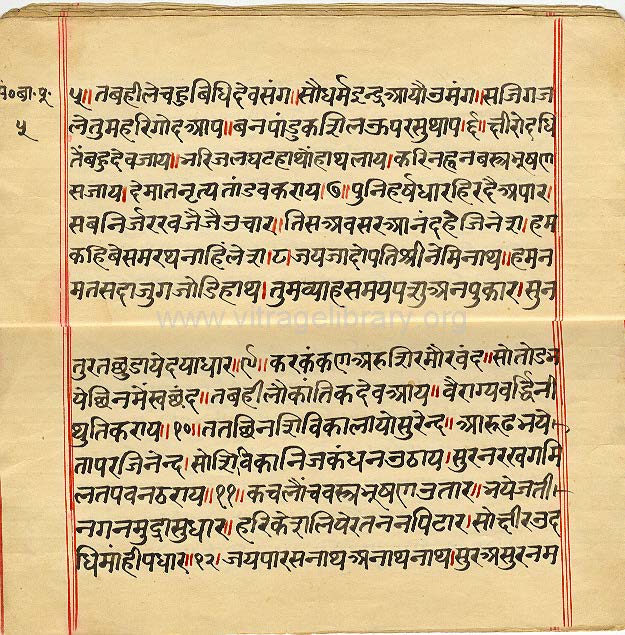 पं०बा.पू.
५
५॥तबहीलेचहुबिधिदेवसंग॥सौधर्मइन्द्रआयौउमंग॥सजिगज
लेतुमहरिगोदआप॥बनपांडुकशिलऊपरसुथाप।६॥क्षीरोदधि
तेंबहुदेवजाय॥भरिजलघटहाथोंहाथलाय।करिनह्वनबस्त्रभूषण
सजाय।देमातनृत्यतांडवकराय।७॥पुनिहर्षधारहिरदैअपार।
सबनिर्जररवजैजैउचार।तिसअवसरआनंदहेजिनेश।हम
कहिबेसमरथनाहिंलेश।८।जयजादोपतिश्रीनेमिनाथ।हमन
मतसदाजुगजोडिहाथ।तुमव्याहसमयपशुअनपुकार।सुन
www.vitragelibrary.org
तुरतछुडायेदयाधार॥९।करकंकणअरुशिरमौरबंद॥सोतोडभ
येछिनमेंस्वछंद॥तबहीलौकांतिकदेवआय॥वैराग्यवर्द्धिनी
थुतिकराय॥१०॥ततछिनशिविकालायोसुरेन्द॥आरूढभये
तापरजिनेन्द।सोशिविकानिजकंधनउठाय।सुरनरखगमि
लतपवनठराय॥११॥कचलौंचवस्त्रभूषणउतार॥भयेजती
नगनमुद्रासुधार॥हरिकेशलियेरतननपिटार।सोक्षीरउद
धिमांहीपधार॥१२।जयपारसनाथअनाथनाथ।सुरअसुरनम